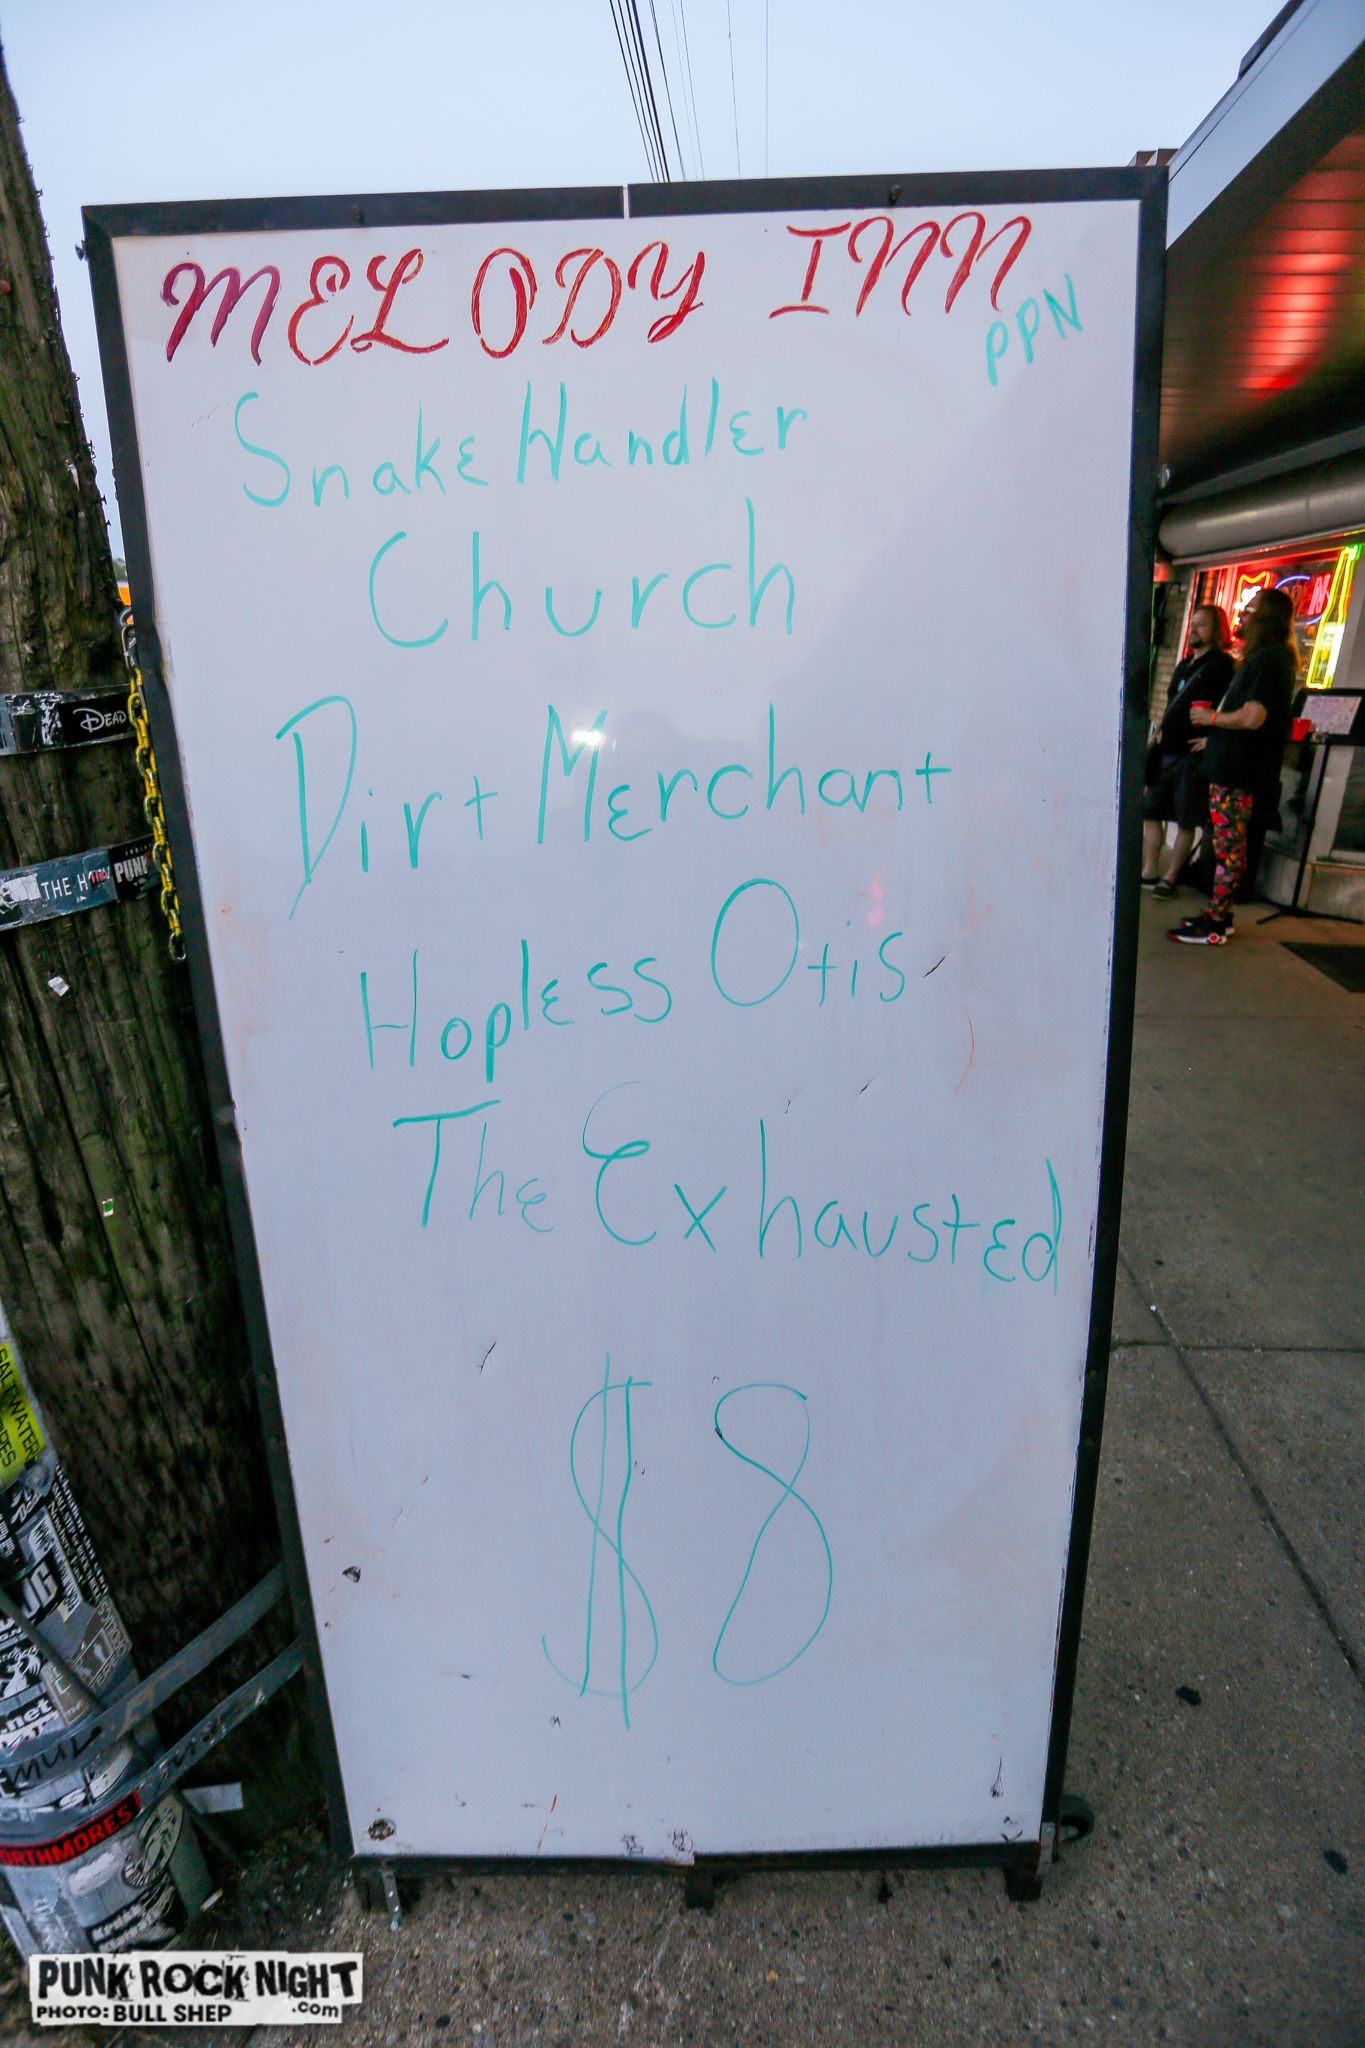 MELODY INN
PPN
Snake Handler
Church
Dirt Merchant
Hopless Otis
The Exhausted
$8
DEAD
THE H
PUNK
OPEN
SALTWATER
.net
ORTHMORES
PUNK ROCK NIGHT
PHOTO: BULL SHEP .com